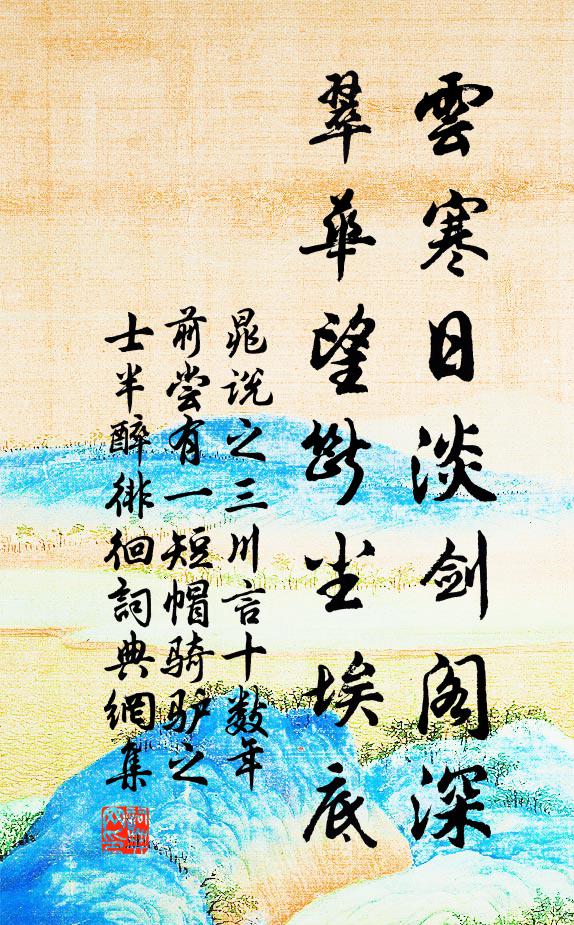 雲寒日淡剑阁深
翠華望断尘埃底
晁说之三川言十数年
前尝有一短帽骑驴之
士半醉徘徊詞典網集